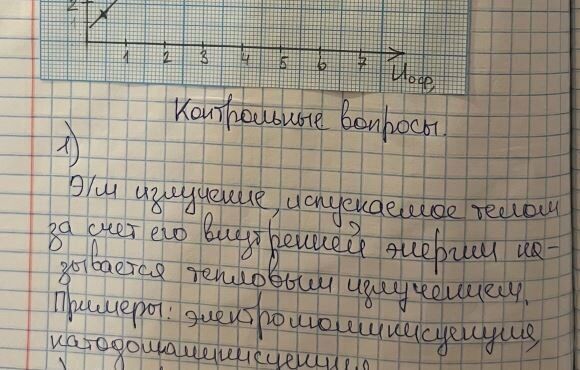 2
1 2 3 4 5 6 7
Контрольные вопросы.
1)
Э/м излучение, испускаемое телом
за счет его внутренней энергии на-
зывается тепловым излучением.
Примеры: электролюминисценция,
катодолюминисценция